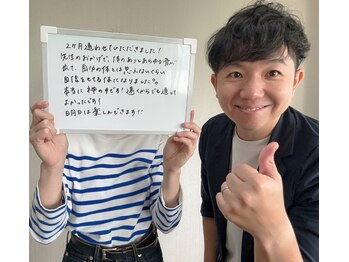 2ヶ月通わせていただきました！
先生のおかげで、体のあらゆる
出て、自分の体とは思えないくらい
自信をもてる体になりました。
本当に神の手です！遠くからでも通って
よかったです！
明日は楽しんできます！！